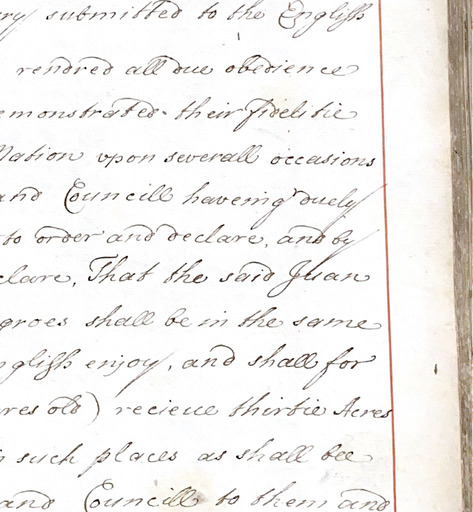 ry submitted to the English
rendred all due obedience
emonstrated their fidelitie
Nation vpon severall occasions
and Councill haveing duely
to order and declare, and by
clare, That the said Juan
groes shall be in the same
nglish enjoy, and shall for
res old) recieue thirtie Acres
n such places as shall bee
and Councill to them and